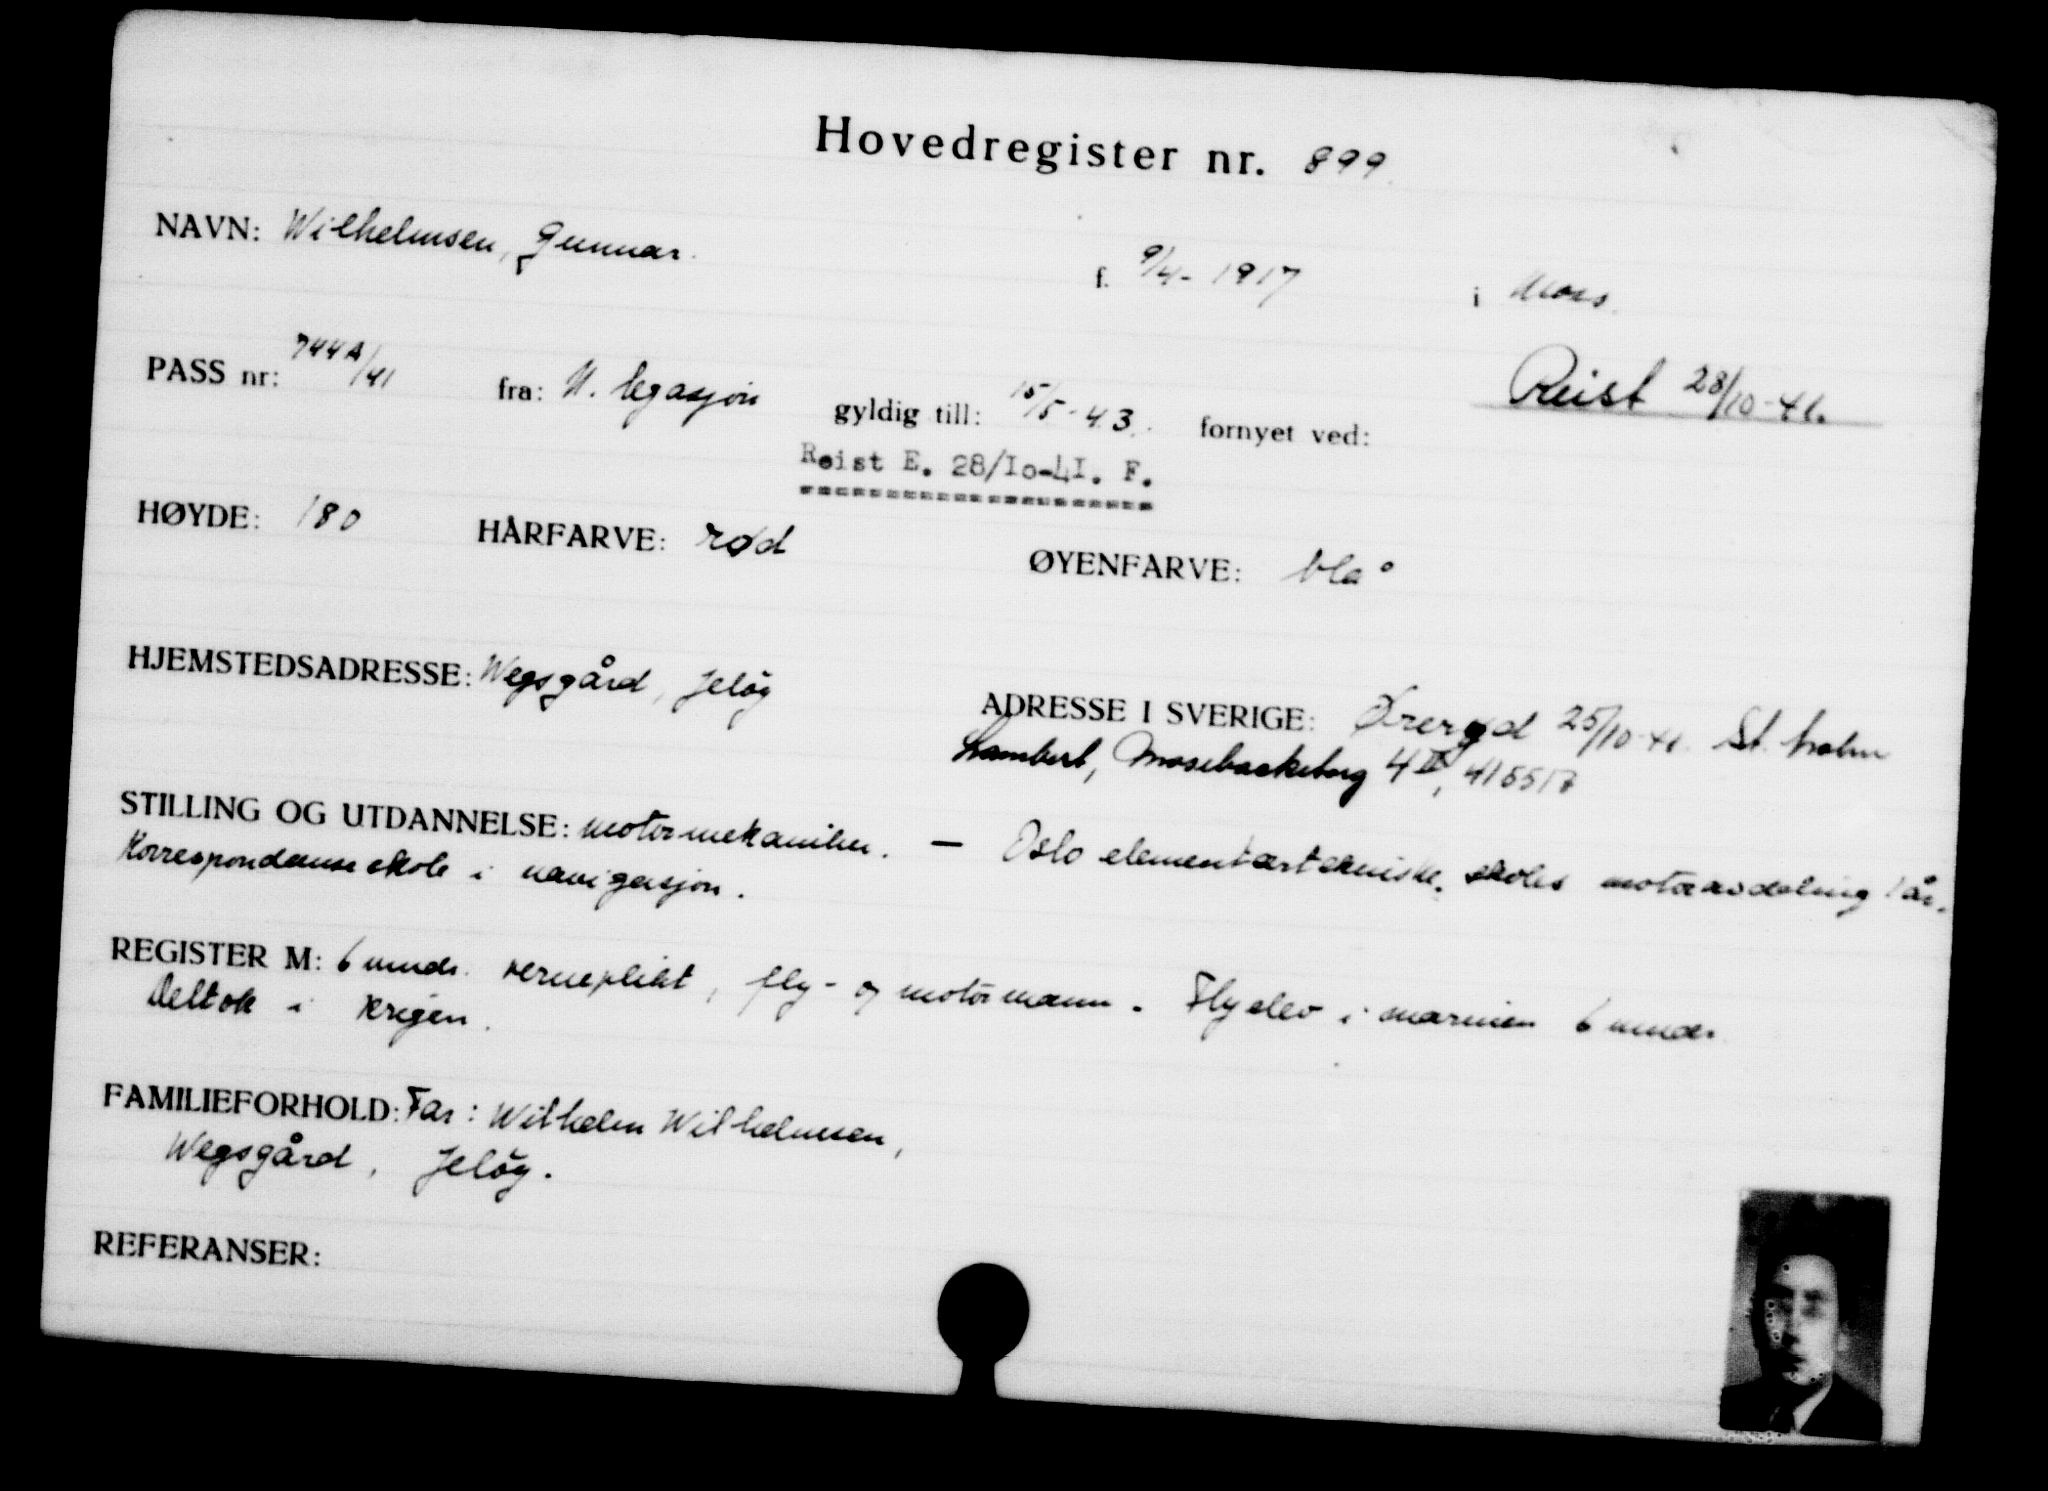 Hovedregister nr. 899.
NAVN: Wilhelmsen, Gunnar. f. 9/4-1917 i Moss.
PASS nr: 744A/41 fra: N. legasjon gyldig till: 15/5-43. fornyet ved: Reist 28/10-41.
Reist E. 28/Io-4I. F.
HØYDE: 180 HÅRFARVE: rød ØYENFARVE: blå
HJEMSTEDSADRESSE: Wegsgård, Jeløy ADRESSE I SVERIGE: Øreryd 25/10-41. St. holm
Lambert, Mosebacketorg 4 II, 415517
STILLING OG UTDANNELSE: motormekaniker. — Oslo elementærtekniske skoles motoravdeling 1 år.
Korrespondanseskole i navigasjon.
REGISTER M: 6 mndr. verneplikt, fly- og motormann. Flyelev i marinen 6 mndr.
Deltok i krigen.
FAMILIEFORHOLD: Far: Wilhelm Wilhelmsen,
Wegsgård, Jeløy.
REFERANSER: